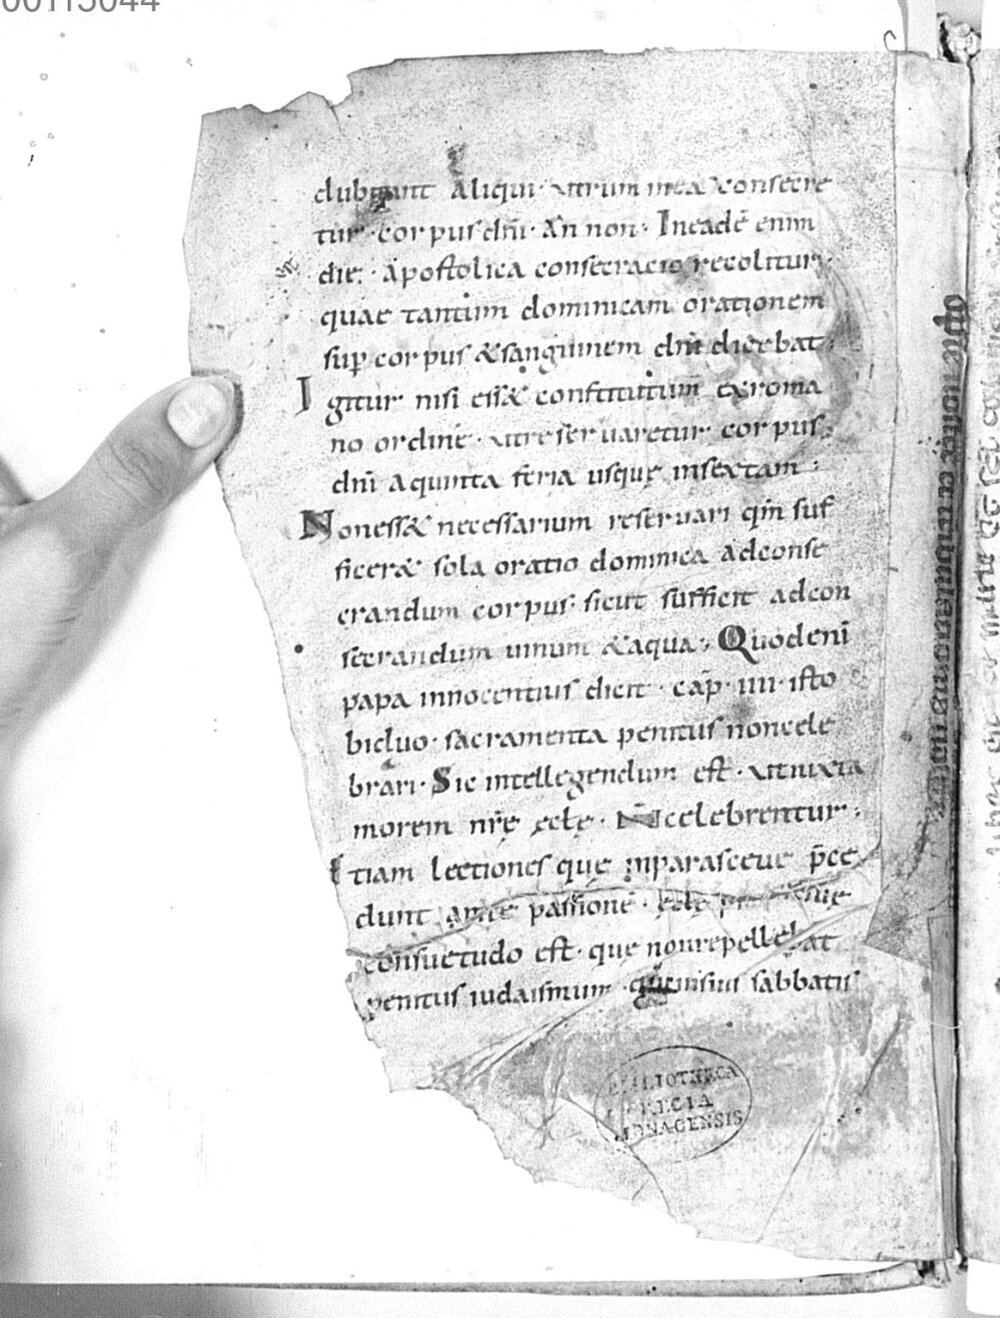 00113044
dubitant aliqui · utrum inea & consecre
tur · corpus dñi · an non · Ineadē enim
die · apostolica consecracio recolitur ·
quae tantum dominicam orationem
sup corpus & sanguinem dñi dicebat ;
Igitur nisi ess& constitutum exroma
no ordine · ut reseruaretur corpus
dñi aquinta feria usque insextam ;
Noness& necessarium reseruari qm̄ suf
ficer& sola oratio dominica adconse
crandum corpus · sicut sufficit adcon
secrandum uinum & aqua ; Quodeni
papa innocentius dicit · cap̄ · iiii · isto
biduo · sacramenta penitus noncele
brari · Sic intellegendum est · ut iuxta
morem nrę ęcłę · celebrentur ;
Etiam lectiones quę inparasceue p̄ce
dunt ante passionē · ęcłę
consuetudo est · que non repellebat
penitus iudaismum · sabbatis
BIBLIOTHECA
REGIA
MONACENSIS